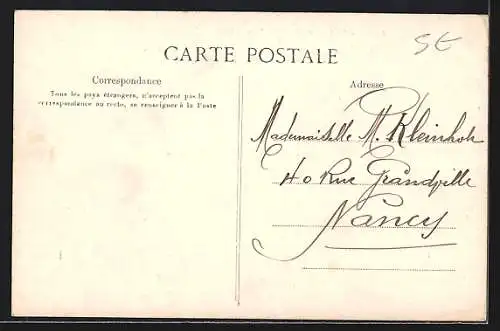 5€
CARTE POSTALE
Correspondance
Tous les pays étrangers, n'acceptent pas la
correspondance au recto, se renseigner à la Poste
Adresse
Mademoiselle M. Kleinholz
40 Rue Grandville
Nancy